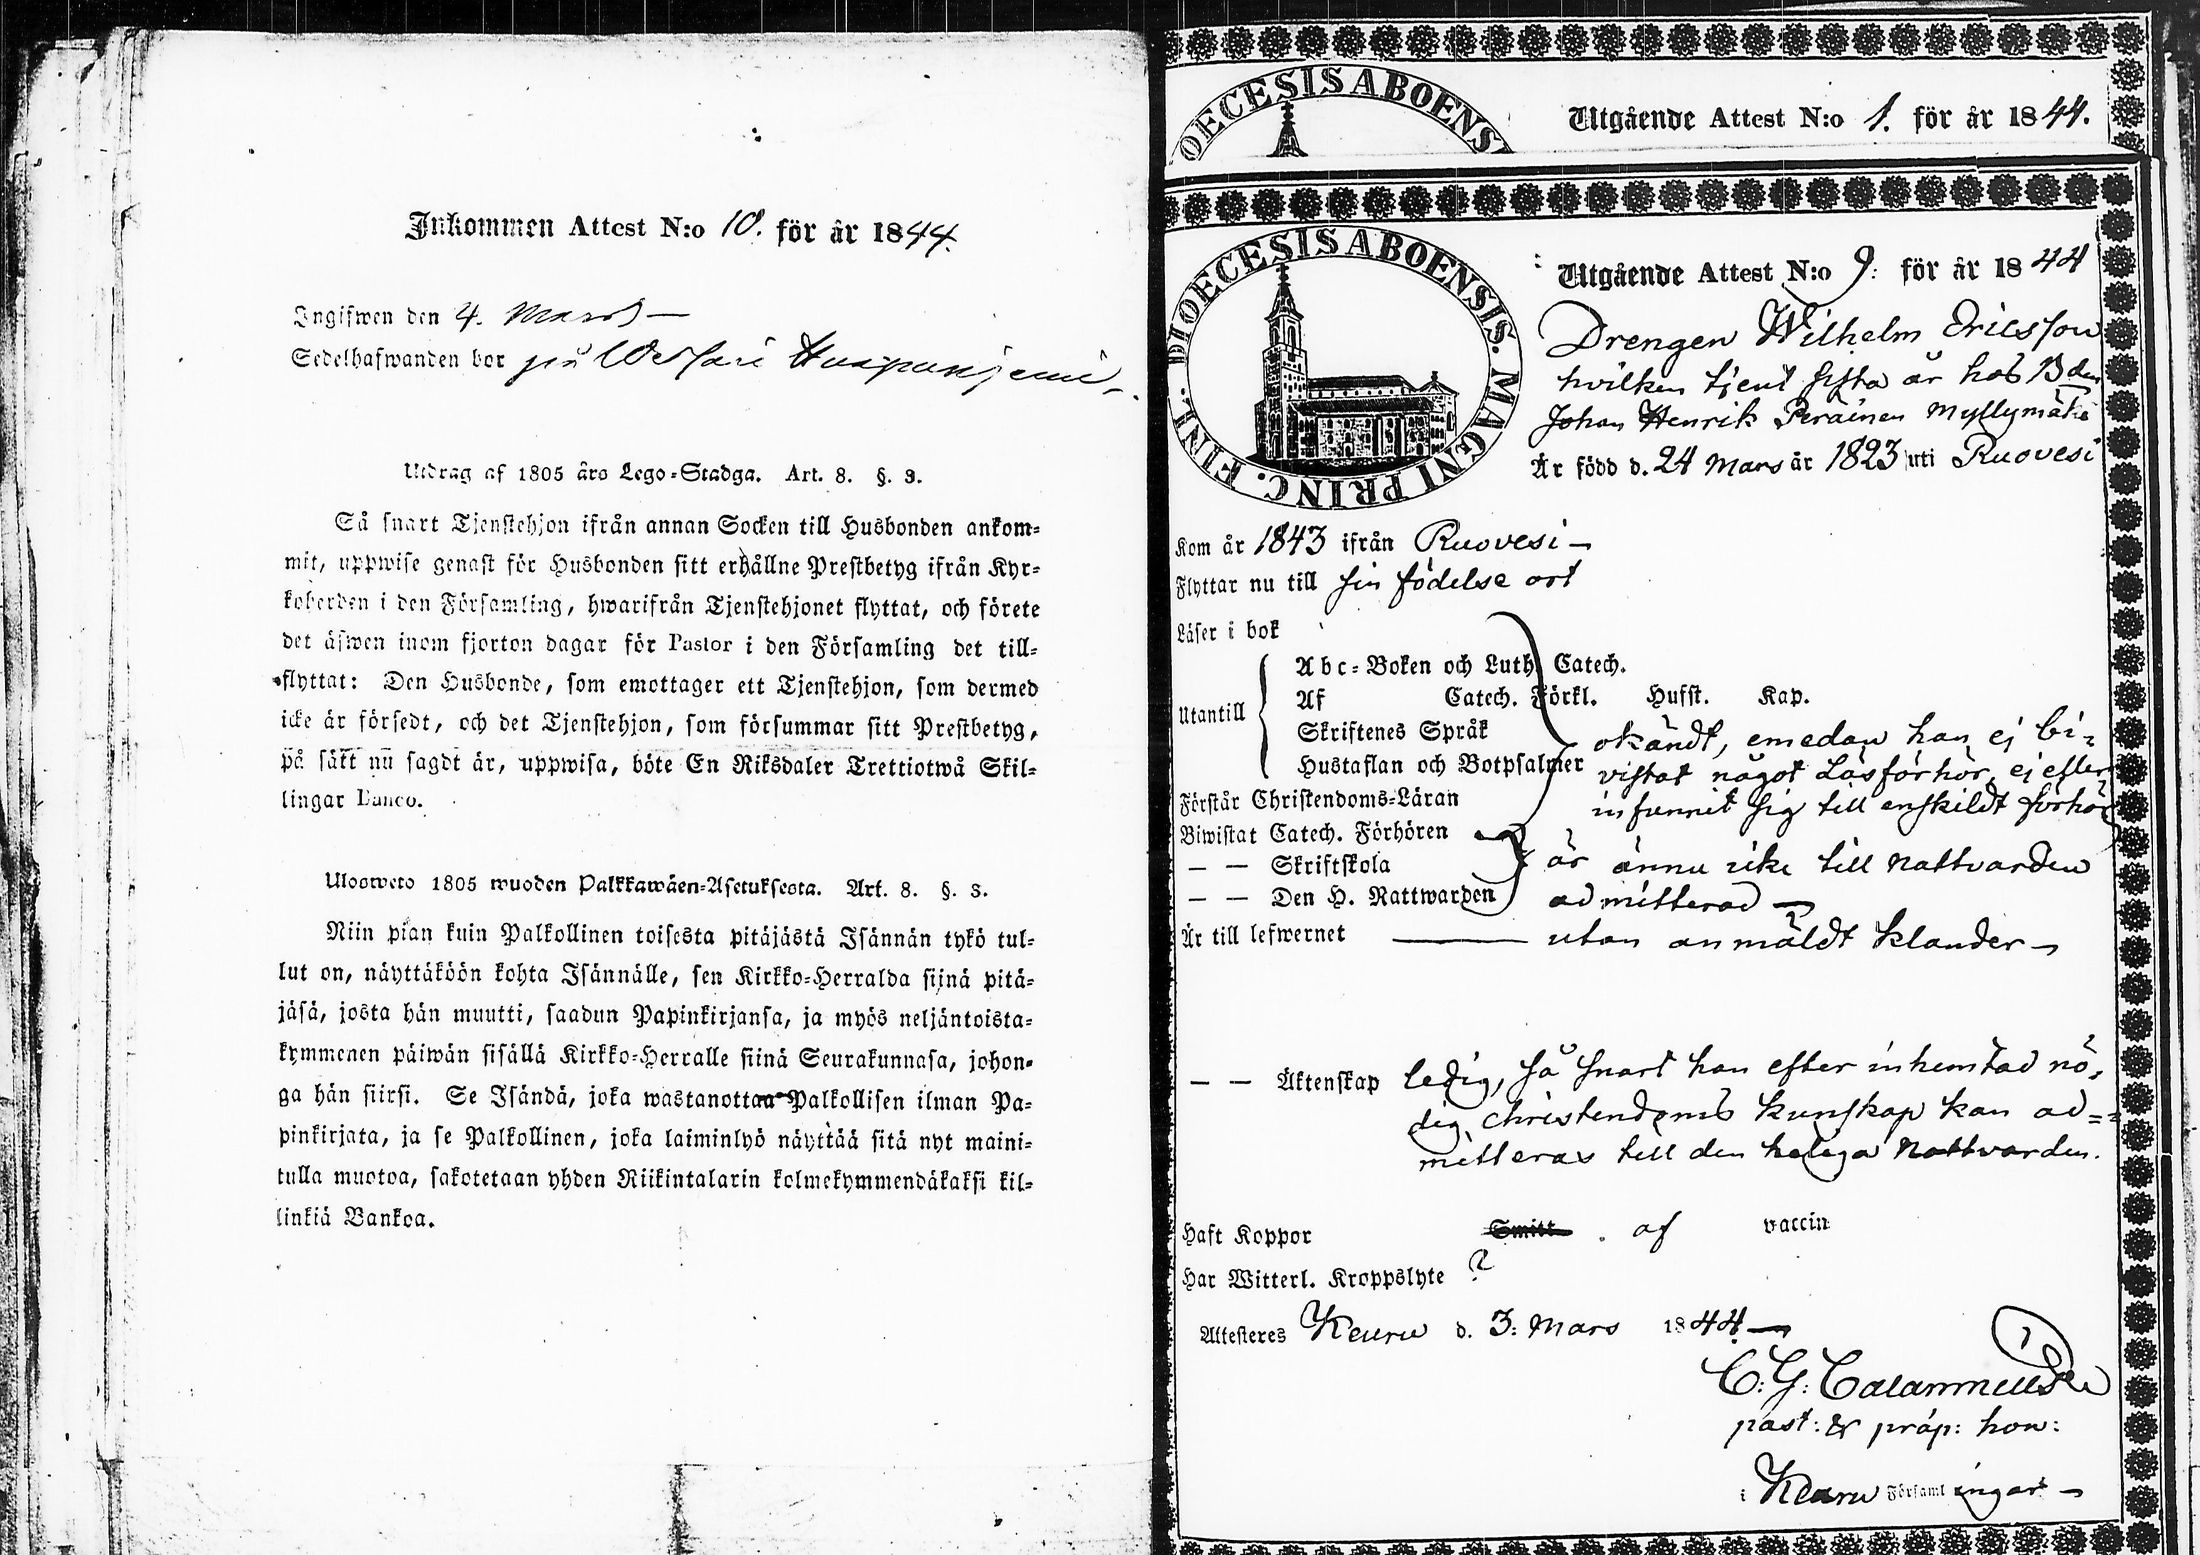 Inkommen Attest N:o 10. för år 1844.
Ingifwen den 4. Mars
Sedelhafwanden bor på
Utdrag af 1805 års Lego-Stadga. Art. 8. §. 3.
Så snart Tjenstehjon ifrån annan Socken till Husbonden ankom-
mit, uppwise genast för Husbonden sitt erhållne Prestbetyg ifrån Kyr-
koherden i den Församling, hwarifrån Tjenstehjonet flyttat, och förete
det äfwen inom fjorton dagar för Pastor i den Församling det till-
flyttat: Den Husbonde, som emottager ett Tjenstehjon, som dermed
icke är försedt, och det Tjenstehjon, som försummar sitt Prestbetyg,
på sätt nu sagdt är, uppwisa, böte En Riksdaler Trettiotwå Skil-
lingar Banco.
Ulosweto 1805 wuoden Palkkawäen-Asetuksesta. Art. 8. §. 3.
Niin pian kuin Palkollinen toisesta pitäjästä Isännän tykö tul-
lut on, näyttäköön kohta Isännälle, sen Kirkko-Herralda siinä pitä-
jäsä, josta hän muutti, saadun Papinkirjansa, ja myös neljäntoista-
kymmenen päiwän sisällä Kirkko-Herralle siinä Seurakunnasa, johon-
ga hän siirsi. Se Isändä, joka wastanottaa Palkollisen ilman Pa-
pinkirjata, ja se Palkollinen, joka laiminlyö näyttää sitä nyt maini-
tulla muotoa, sakotetaan yhden Riikintalarin kolmekymmendäkaksi kil-
linkiä Bankoa.
DIOECESIS ABOENS
Utgående Attest N:o 1. för år 1844.
DIOECESIS ABOENSIS. MAGNI PRINC. FINL.
Utgående Attest N:o 9: för år 1844
Drengen Wilhelm Ericsson
hvilken tjent sista år hos Bden
Johan Henrik Peräinen Myllymäki
Är född d. 24 Mars år 1823 uti Ruovesi
Kom år 1843 ifrån Ruovesi
Flyttar nu till sin födelse ort
Läser i bok
Utantill
Abc-Boken och Luth. Catech.
Af Catech. Förkl. Husst. Kap.
Skriftenes Språk
Hustaflan och Botpsalmer
okändt, emedan han ej bi-
vistat något Läsförhör, ej efter
infunnit sig till enskildt förhör
Förstår Christendoms-Läran
Biwistat Catech. Förhören
— — Skriftskola
— — Den H. Nattwarden
är ännu icke till nattvarden
admitterad
Är till lefwernet utan anmäldt klander
— — Äktenskap ledig, så snart han efter inhemtad nö-
dig Christendoms kunskap kan ad-
mitteras till den heliga Nattvarden.
Haft Koppor Smitt. af vaccin
Har Witterl. Kroppslyte ?
Attesteres Keuru d. 3: Mars 1844
C: G: Calamnius
past: & präp: hon:
i Keuru Församlingar